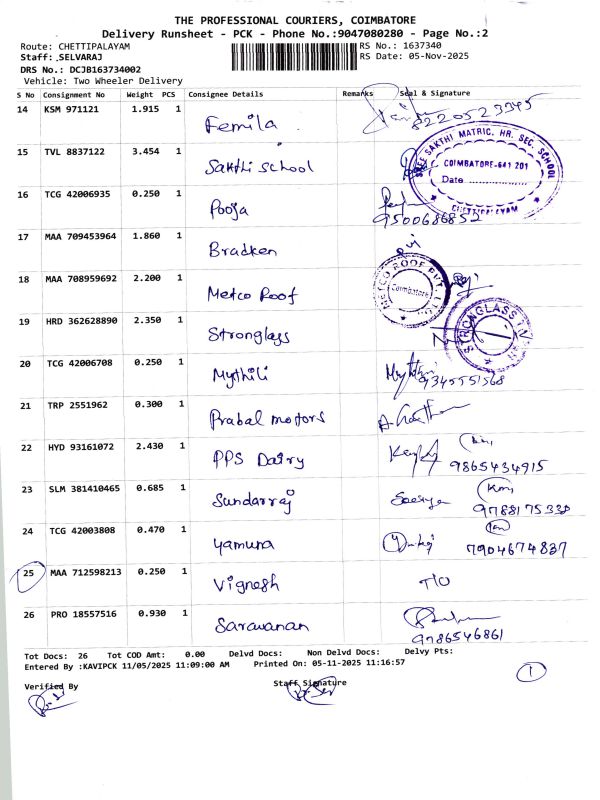 THE PROFESSIONAL COURIERS, COIMBATORE
Delivery Runsheet - PCK - Phone No.:9047080280 - Page No.:2
Route: CHETTIPALAYAM RS No.: 1637340
Staff: ,SELVARAJ RS Date: 05-Nov-2025
DRS No.: DCJB163734002
Vehicle: Two Wheeler Delivery
S No Consignment No Weight PCS Consignee Details Remarks Seal & Signature
14 KSM 971121 1.915 1 Femila 8220523345
15 TVL 8837122 3.454 1 Sakthi School
SREE SAKTHI MATRIC. HR. SEC. SCHOOL
COIMBATORE-641 201
Date
CHETTIPALAYAM
16 TCG 42006935 0.250 1 Pooja 9500686852
17 MAA 709453964 1.860 1 Bradken
18 MAA 708959692 2.200 1 Metco Roof
METCO ROOF PVT.
Coimbatore
19 HRD 362628890 2.350 1 Stronglass
STRONGLASS
20 TCG 42006708 0.250 1 Mythili 9345551568
21 TRP 2551962 0.300 1 Prabal motors
22 HYD 93161072 2.430 1 PPS Dairy 9865434915
23 SLM 381410465 0.685 1 Sundarraj 9788175330
24 TCG 42003808 0.470 1 Yamuna 7904674837
25 MAA 712598213 0.250 1 Vignesh T/O
26 PRO 18557516 0.930 1 Saravanan 9786546861
Tot Docs: 26 Tot COD Amt: 0.00 Delvd Docs: Non Delvd Docs: Delvy Pts:
Entered By :KAVIPCK 11/05/2025 11:09:00 AM Printed On: 05-11-2025 11:16:57
Verified By Staff Signature
1